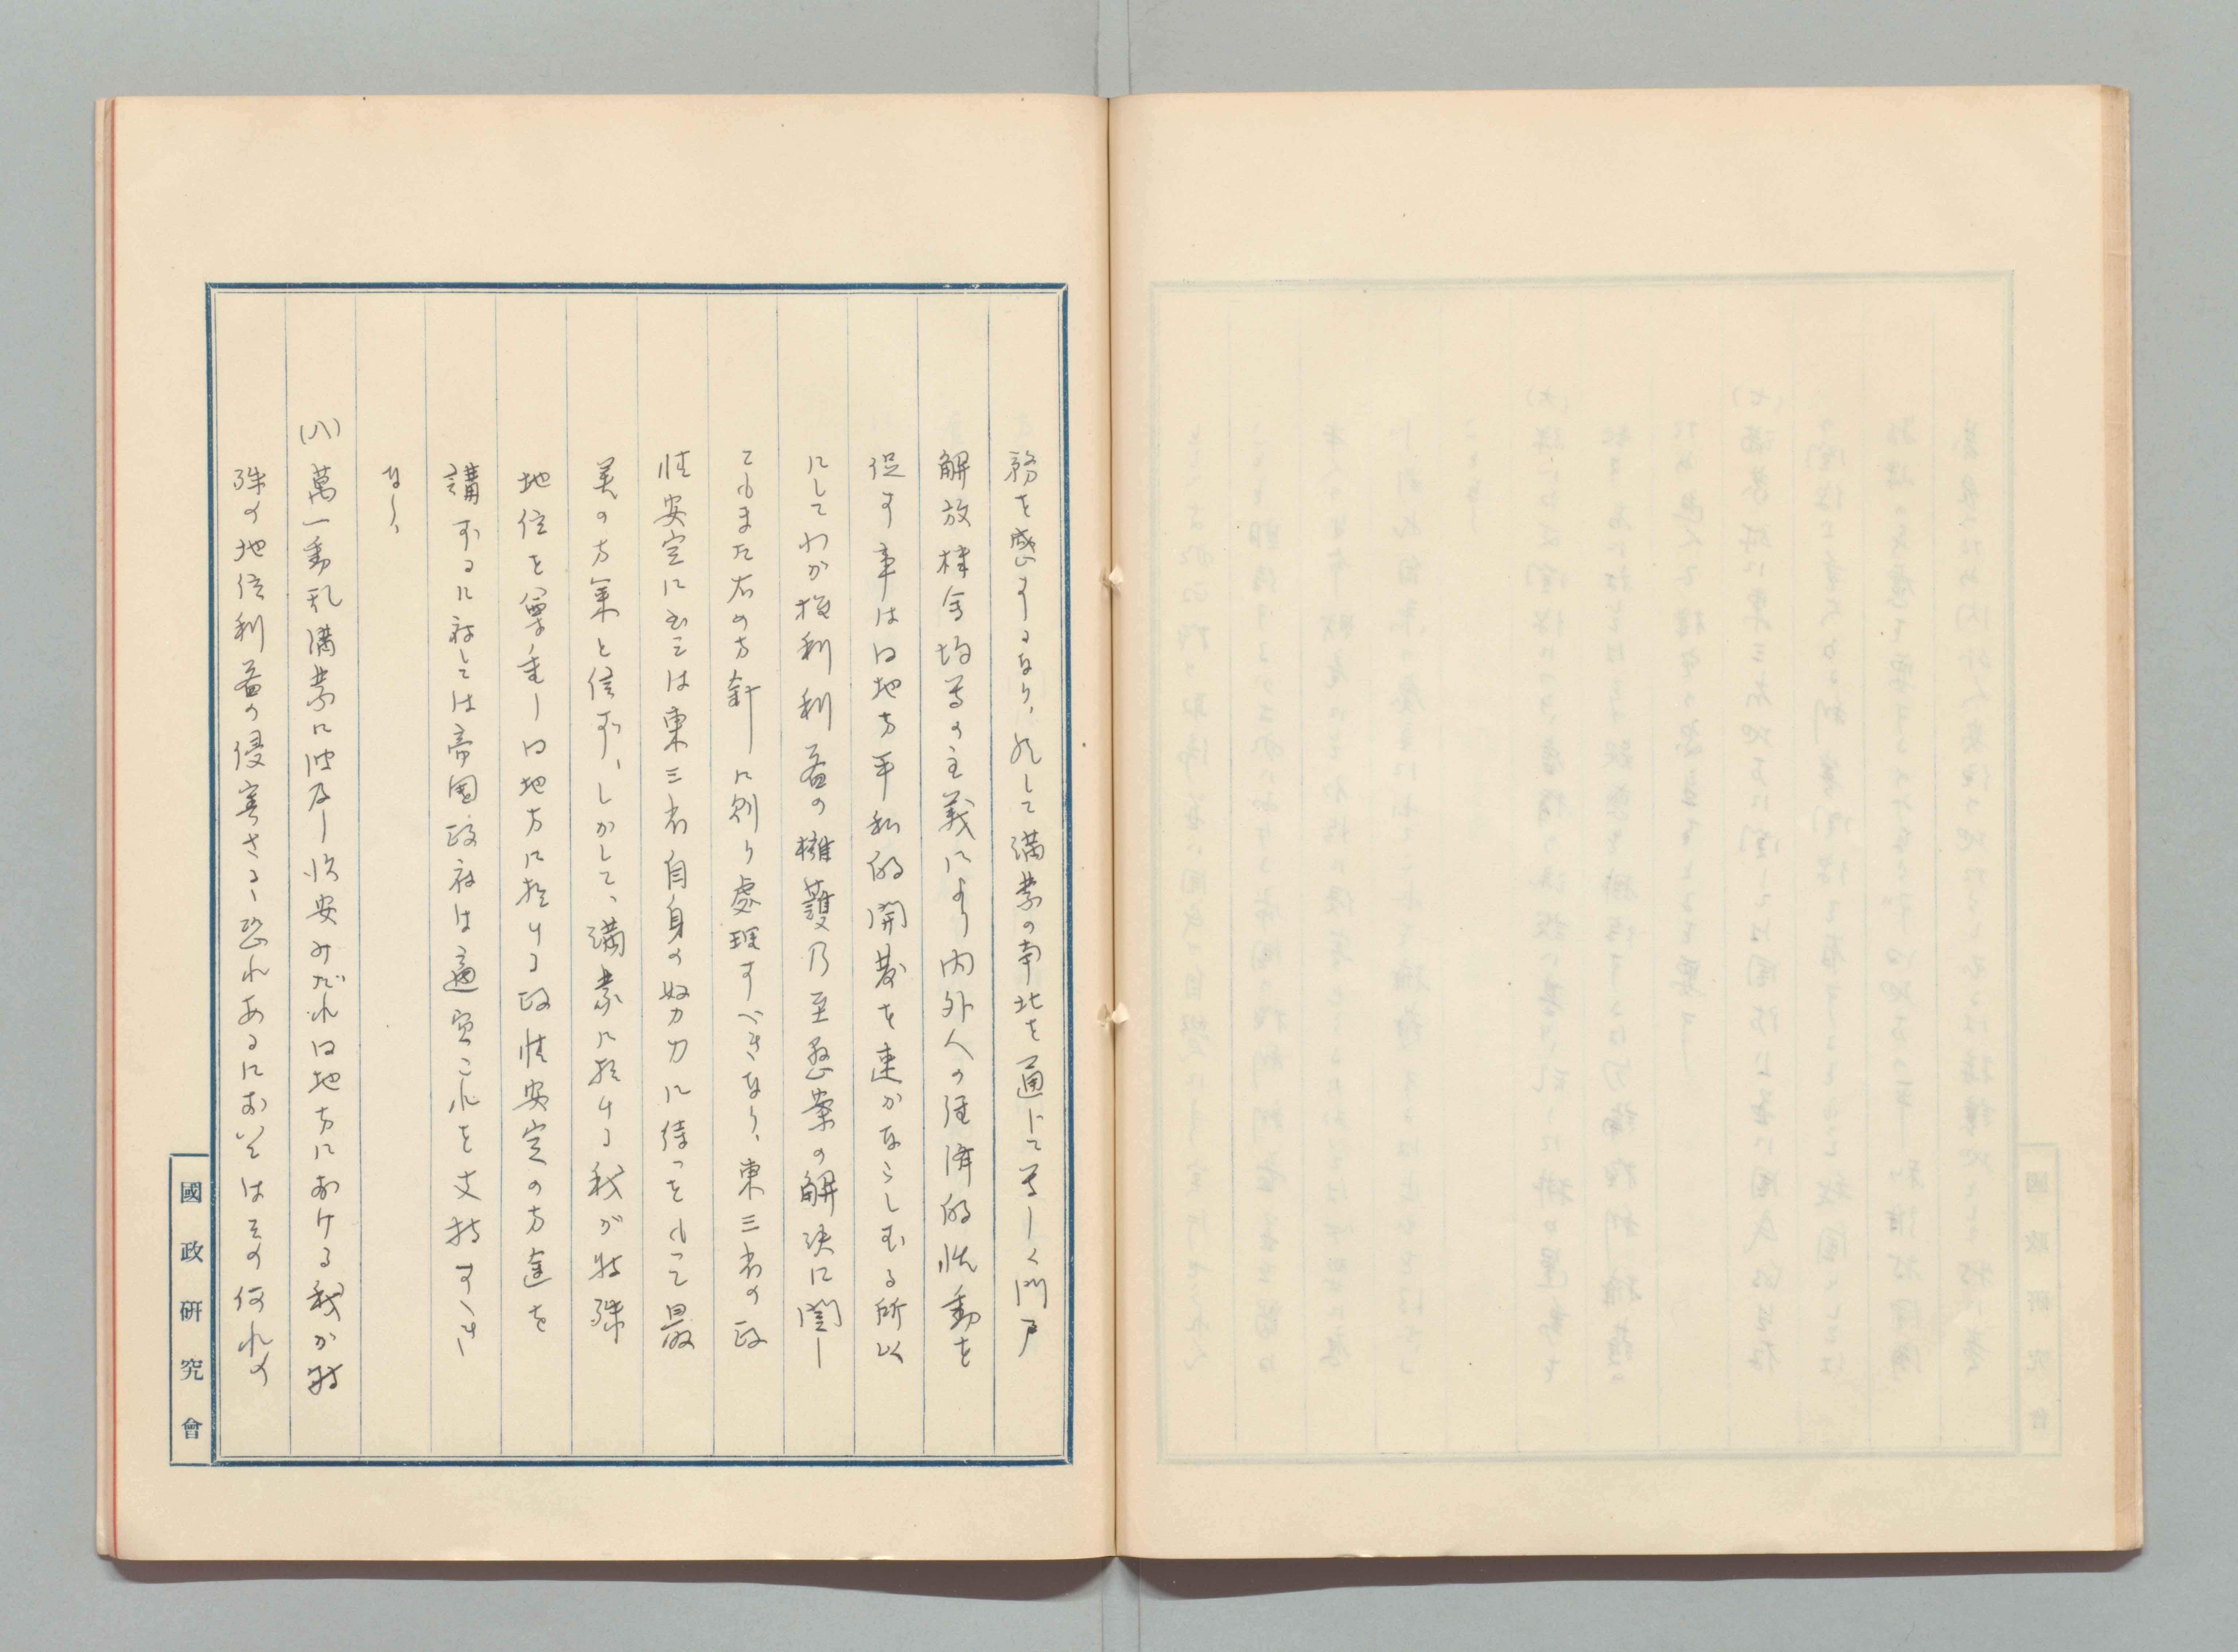 務を感するなり、然して満蒙の南北を通じて等しく門戸
解放機会均等の主義により内外人の経済的活動を
促す事は同地方平和的開発を速かならしむる所以
にしてわか権利利益の擁護乃至懸案の解決に関し
てもまた右の方針に則り處理すべきなり、東三省の政
情安定に至ては東三省自身の努力に待つをもって最
善の方策と信ず、しかして、満蒙に於ける我が特殊
地位を尊重し同地方に於ける政情安定の方途を
講ずるに於ては帝国政府は適宜これを支持すべき
なり、
(八)萬一動乱満蒙に波及し治安みだれ同地方における我か特
殊の地位利益の侵害さるゝ恐れあるにおいてはその何れの
國政研究會